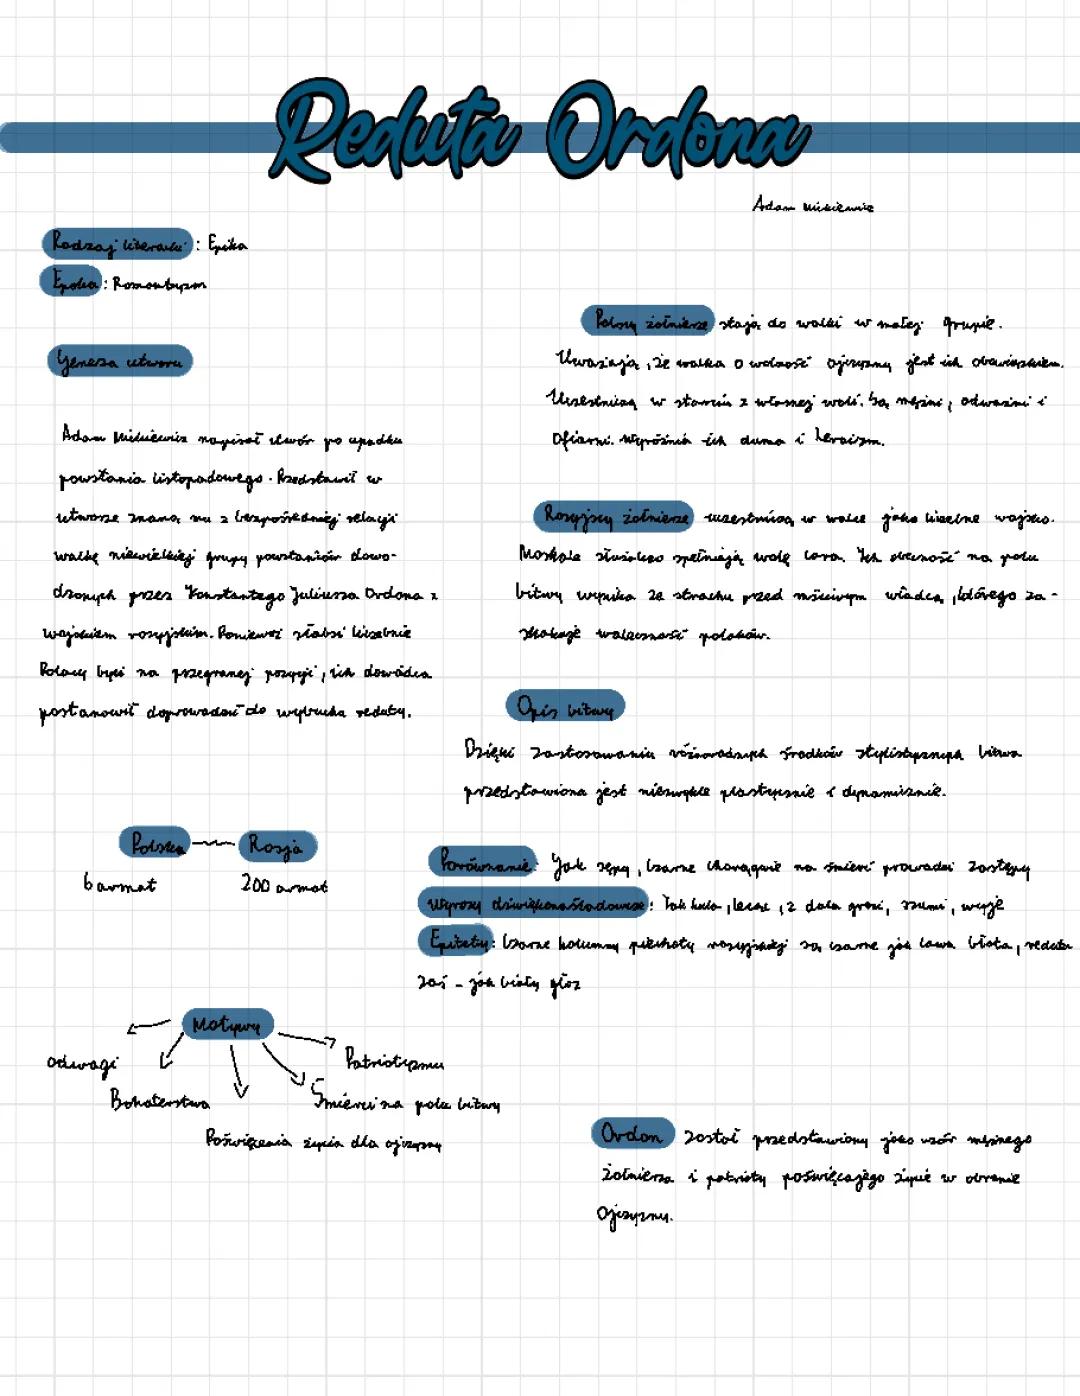 Reduta Ordona
Adam Mickiewicz
Rodzaj literacki : Epika
Epoka : Romantyzm
Geneza utworu
Adam Mickiewicz napisał utwór po upadku
powstania listopadowego. Przedstawił w
utworze znaną mu z bezpośredniej relacji
walkę niewielkiej grupy powstańców dowo-
dzonych przez Konstantego Juliusza Ordona z
wojskiem rosyjskim. Ponieważ słabsi liczebnie
Polacy byli na przegranej pozycji, ich dowódca
postanowił doprowadzić do wybuchu reduty.
Polska Rosja
6 armat 200 armat
Motywy
odwagi
Patriotyzmu
Bohaterstwa
Śmierci na polu bitwy
Poświęcenia życia dla ojczyzny
Polscy żołnierze stają do walki w małej grupie.
Uważają, że walka o wolność ojczyzny jest ich obowiązkiem.
Uczestniczą w starciu z własnej woli. Są mężni, odważni i
ofiarni. Wyróżnia ich duma i heroizm.
Rosyjscy żołnierze uczestniczą w walce jako liczebne wojsko.
Moskale służalczo spełniają wolę cara. Ich obecność na polu
bitwy wynika ze strachu przed mściwym władcą, którego za-
skakuje waleczność polaków.
Opis bitwy
Dzięki zastosowaniu różnorodnych środków stylistycznych bitwa
przedstawiona jest niezwykle plastycznie i dynamicznie.
Porównanie: Jak sępy, czarne chorągwie na śmierć prowadzi zastępy
Wyrazy dźwiękonaśladowcze: Tak kula, lecąc, z dala grozi, szumi, wyje
Epitety: czarne kolumny piechoty rosyjskiej są czarne jak lawa błota, reduta
zaś - jak biały głaz
Ordon został przedstawiony jako wzór mężnego
żołnierza i patrioty poświęcajego życie w obronie
ojczyzny.